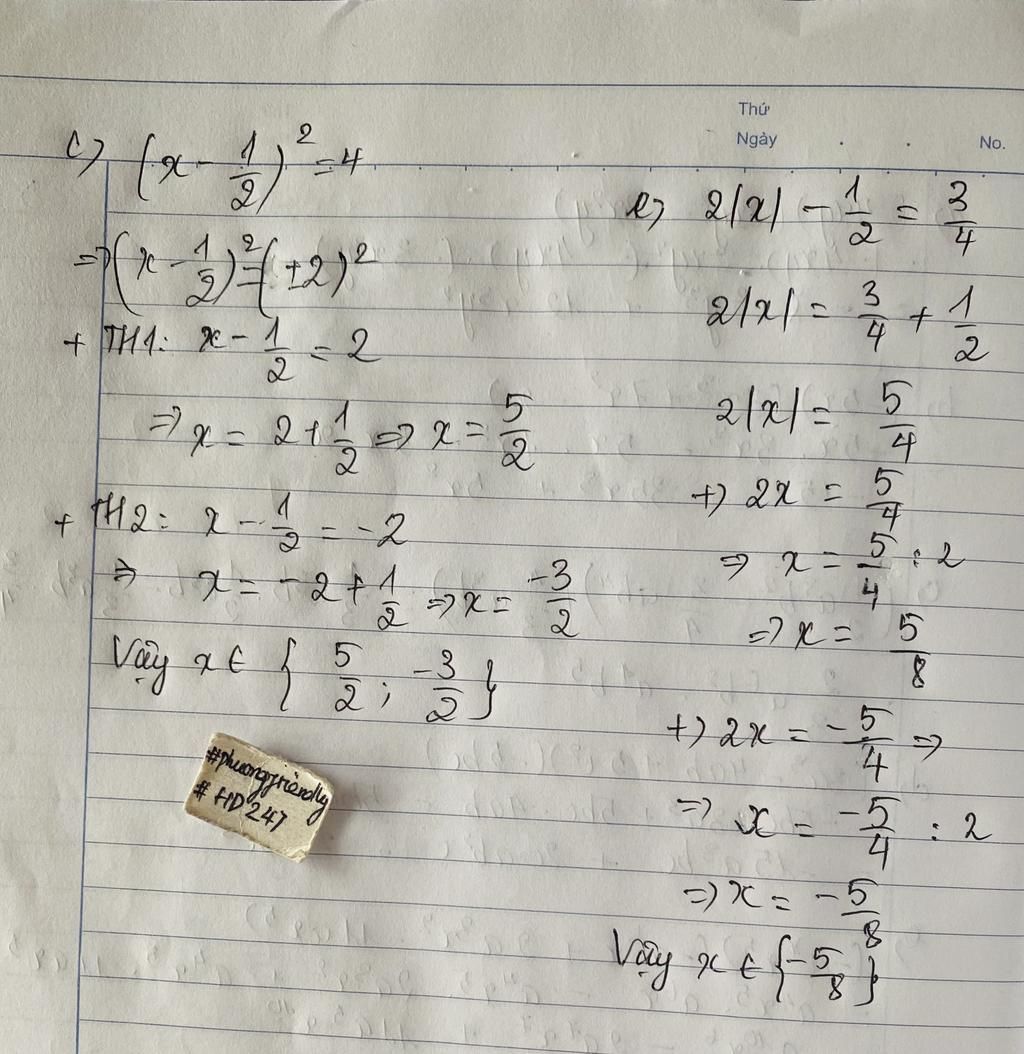 Thứ
Ngày . . No.
c) (x - 1/2)² = 4
=> (x - 1/2)² = (±2)²
+ TH1: x - 1/2 = 2
=> x = 2 + 1/2 => x = 5/2
+ TH2: x - 1/2 = -2
=> x = -2 + 1/2 => x = -3/2
Vậy x ∈ { 5/2 ; -3/2 }
#phuongfriendly
# HD247
e) 2|x| - 1/2 = 3/4
2|x| = 3/4 + 1/2
2|x| = 5/4
+) 2x = 5/4
=> x = 5/4 : 2
=> x = 5/8
+) 2x = -5/4 =>
=> x = -5/4 : 2
=> x = -5/8
Vậy x ∈ {-5/8}